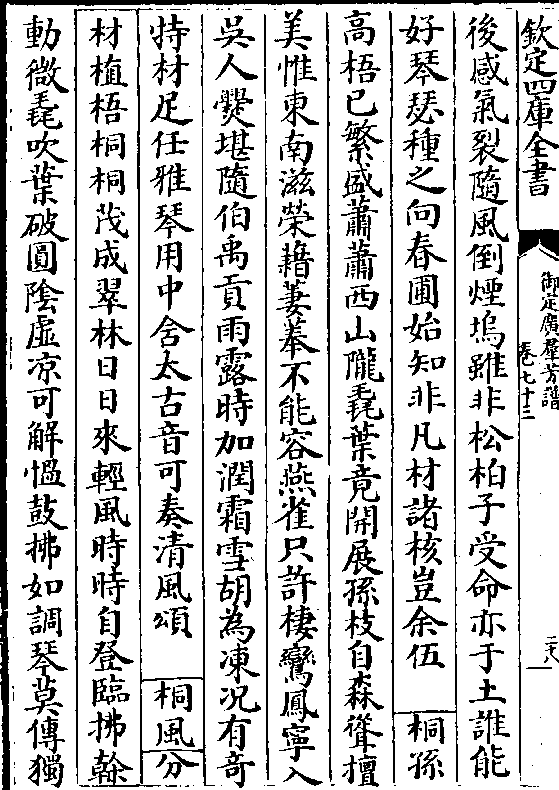 欽定四庫全書
御定廣羣芳譜
卷七十三
二十八
後感氣裂隨風倒煙塢雖非松柏子受命亦于土誰能
好琴瑟種之向春圃始知非凡材諸核豈余伍 桐孫
高梧已繁盛蕭蕭西山隴毳葉竟開展孫枝自森聳擅
美惟東南滋榮藉萋菶不能容燕雀只許棲鸞鳳寧入
吳人爨堪隨伯禹貢雨露時加潤霜雪胡為凍况有奇
特材足任雅琴用中含太古音可奏清風頌 桐風 分
材植梧桐桐茂成翠林日日來輕風時時自登臨拂榦
動微毳吹葉破圓陰虛凉可解慍鼓拂如調琴莫傳獨